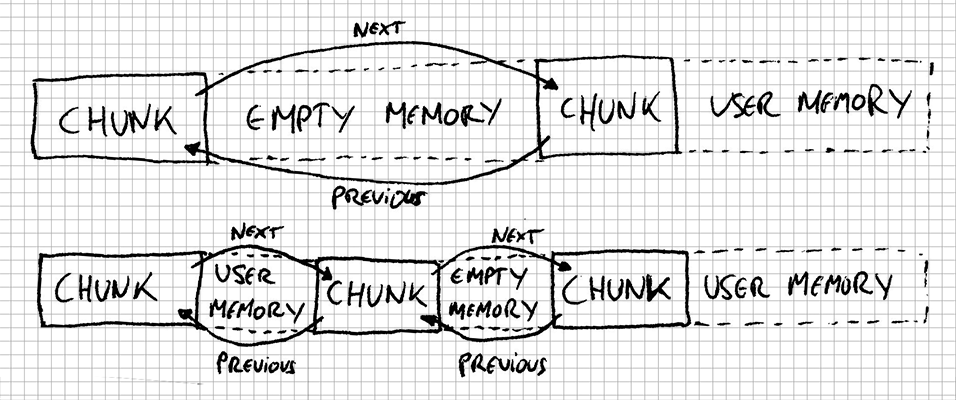 NEXT
CHUNK EMPTY MEMORY CHUNK USER MEMORY
PREVIOUS
NEXT NEXT
CHUNK USER MEMORY CHUNK EMPTY MEMORY CHUNK USER MEMORY
PREVIOUS PREVIOUS